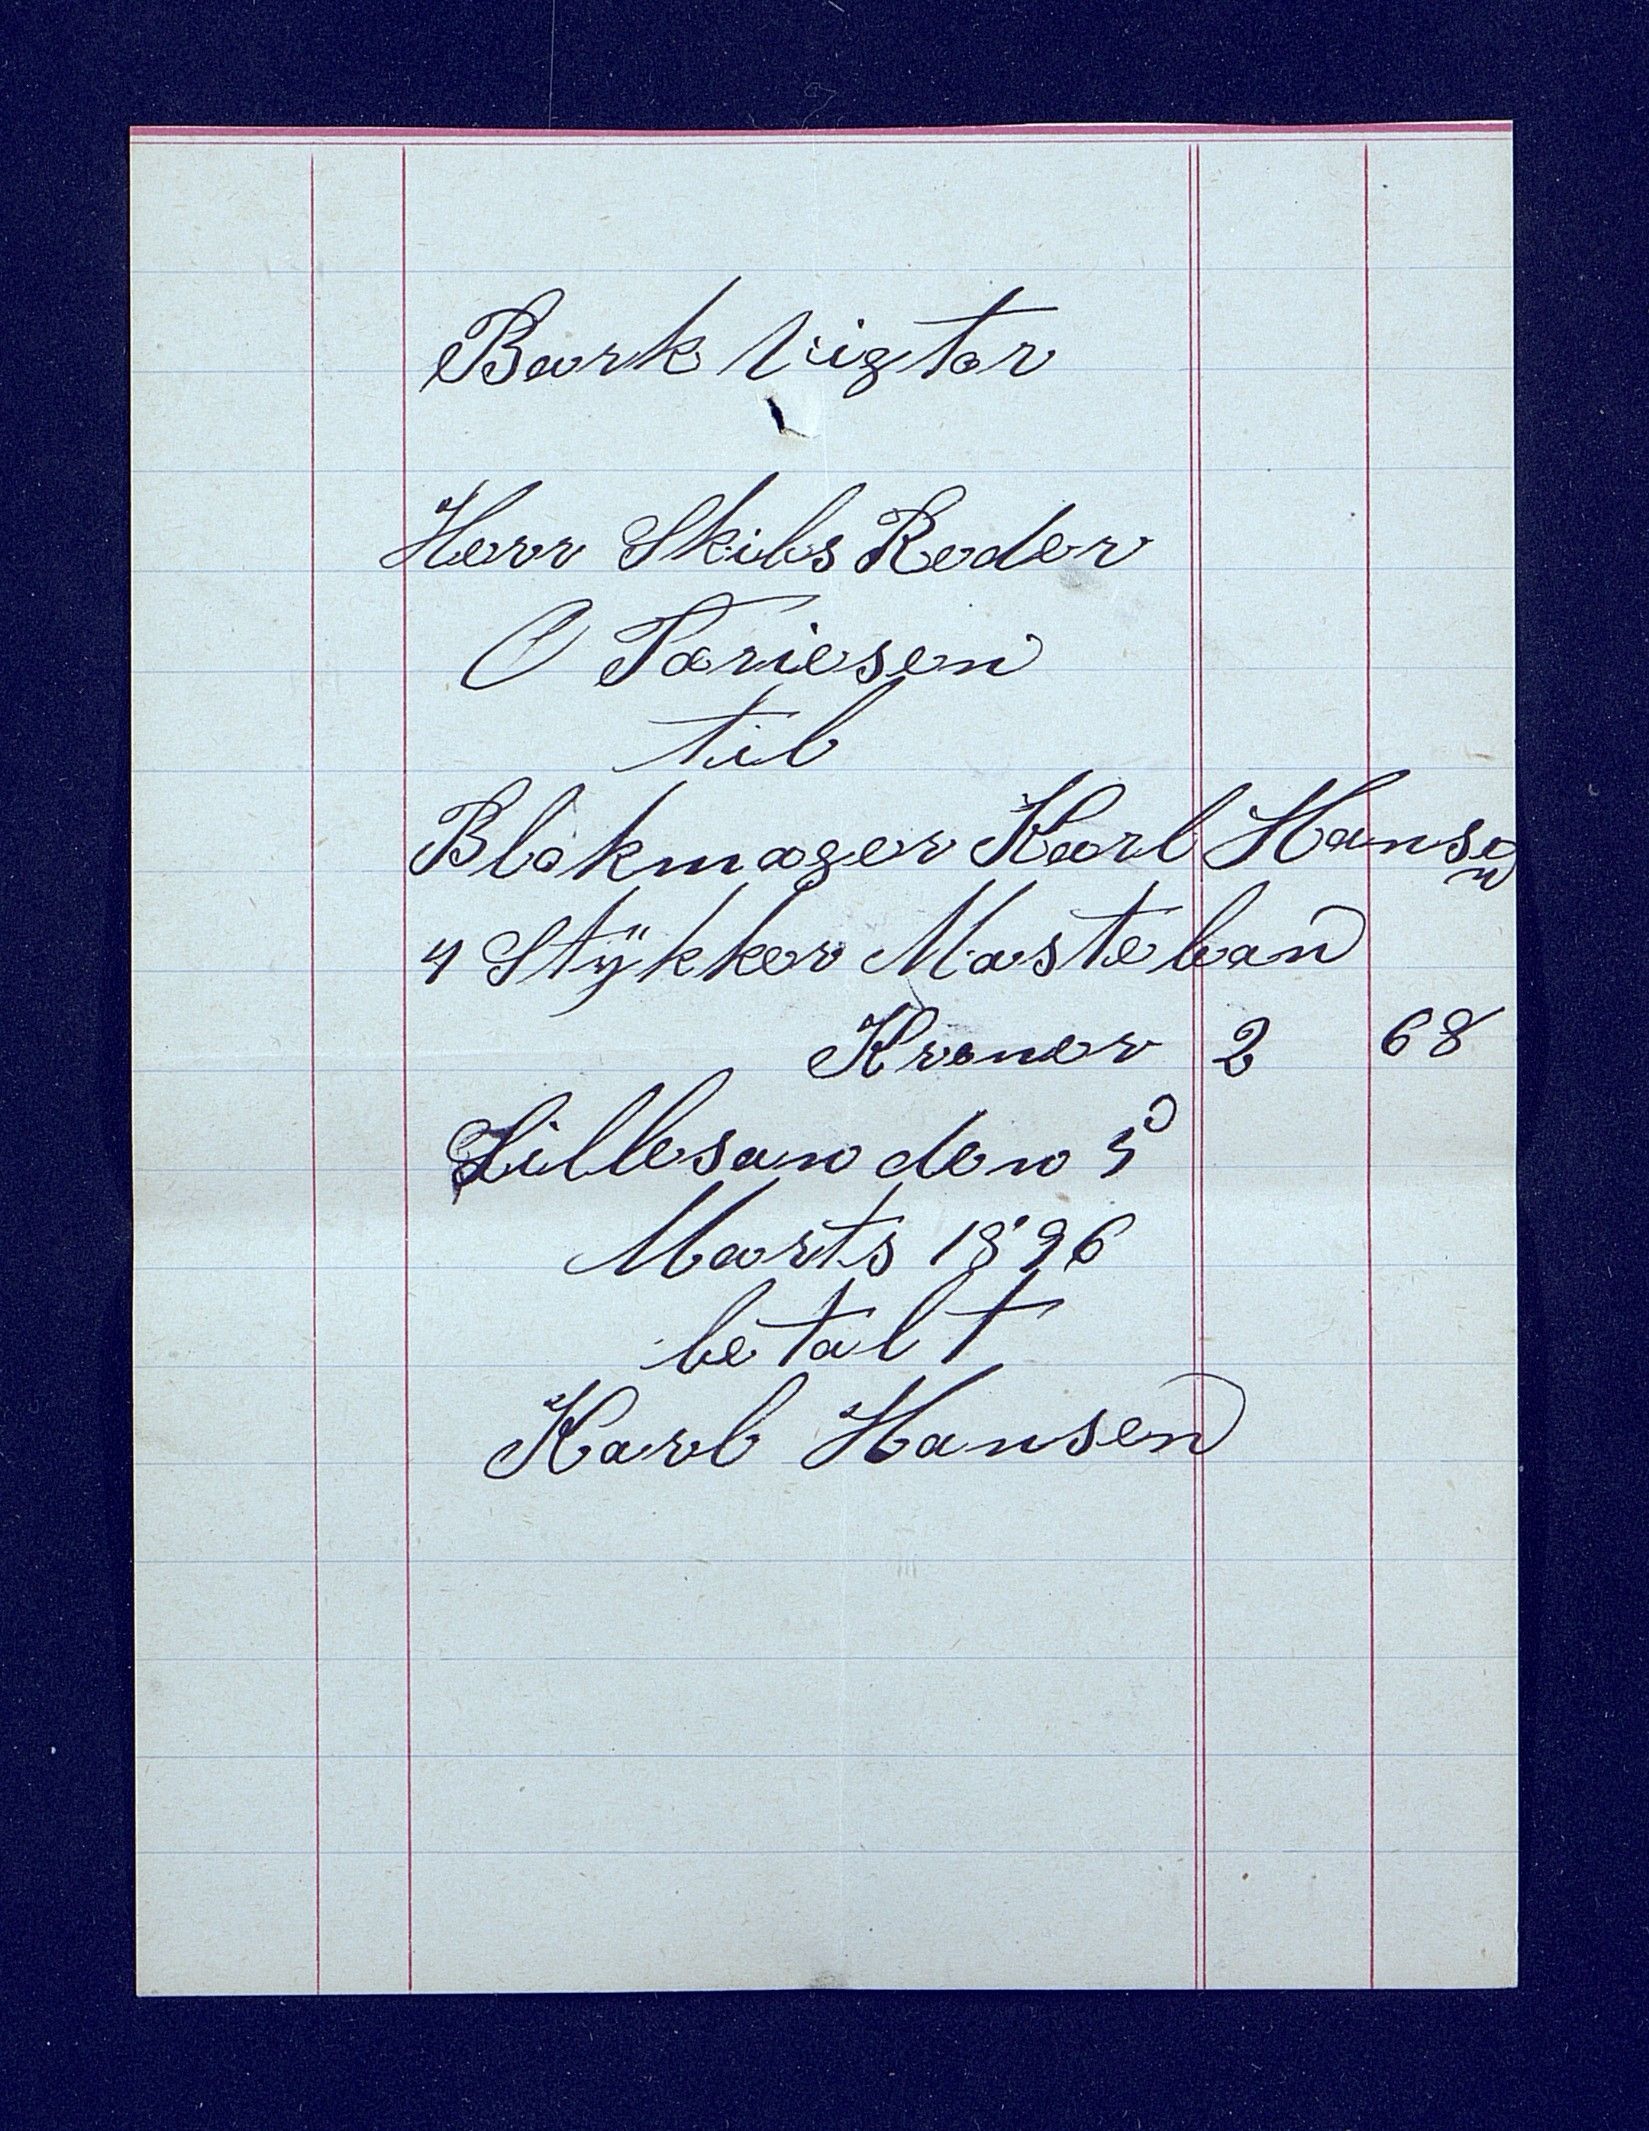 Bark Vigtor
Herr Skibs Reder
O Tariesen
til
Blokmager Karl Hansen
4 Stÿkker Masteban
Kroner 2 68
Lillesan den 5
Marts 1896
betalt
Karl Hansen